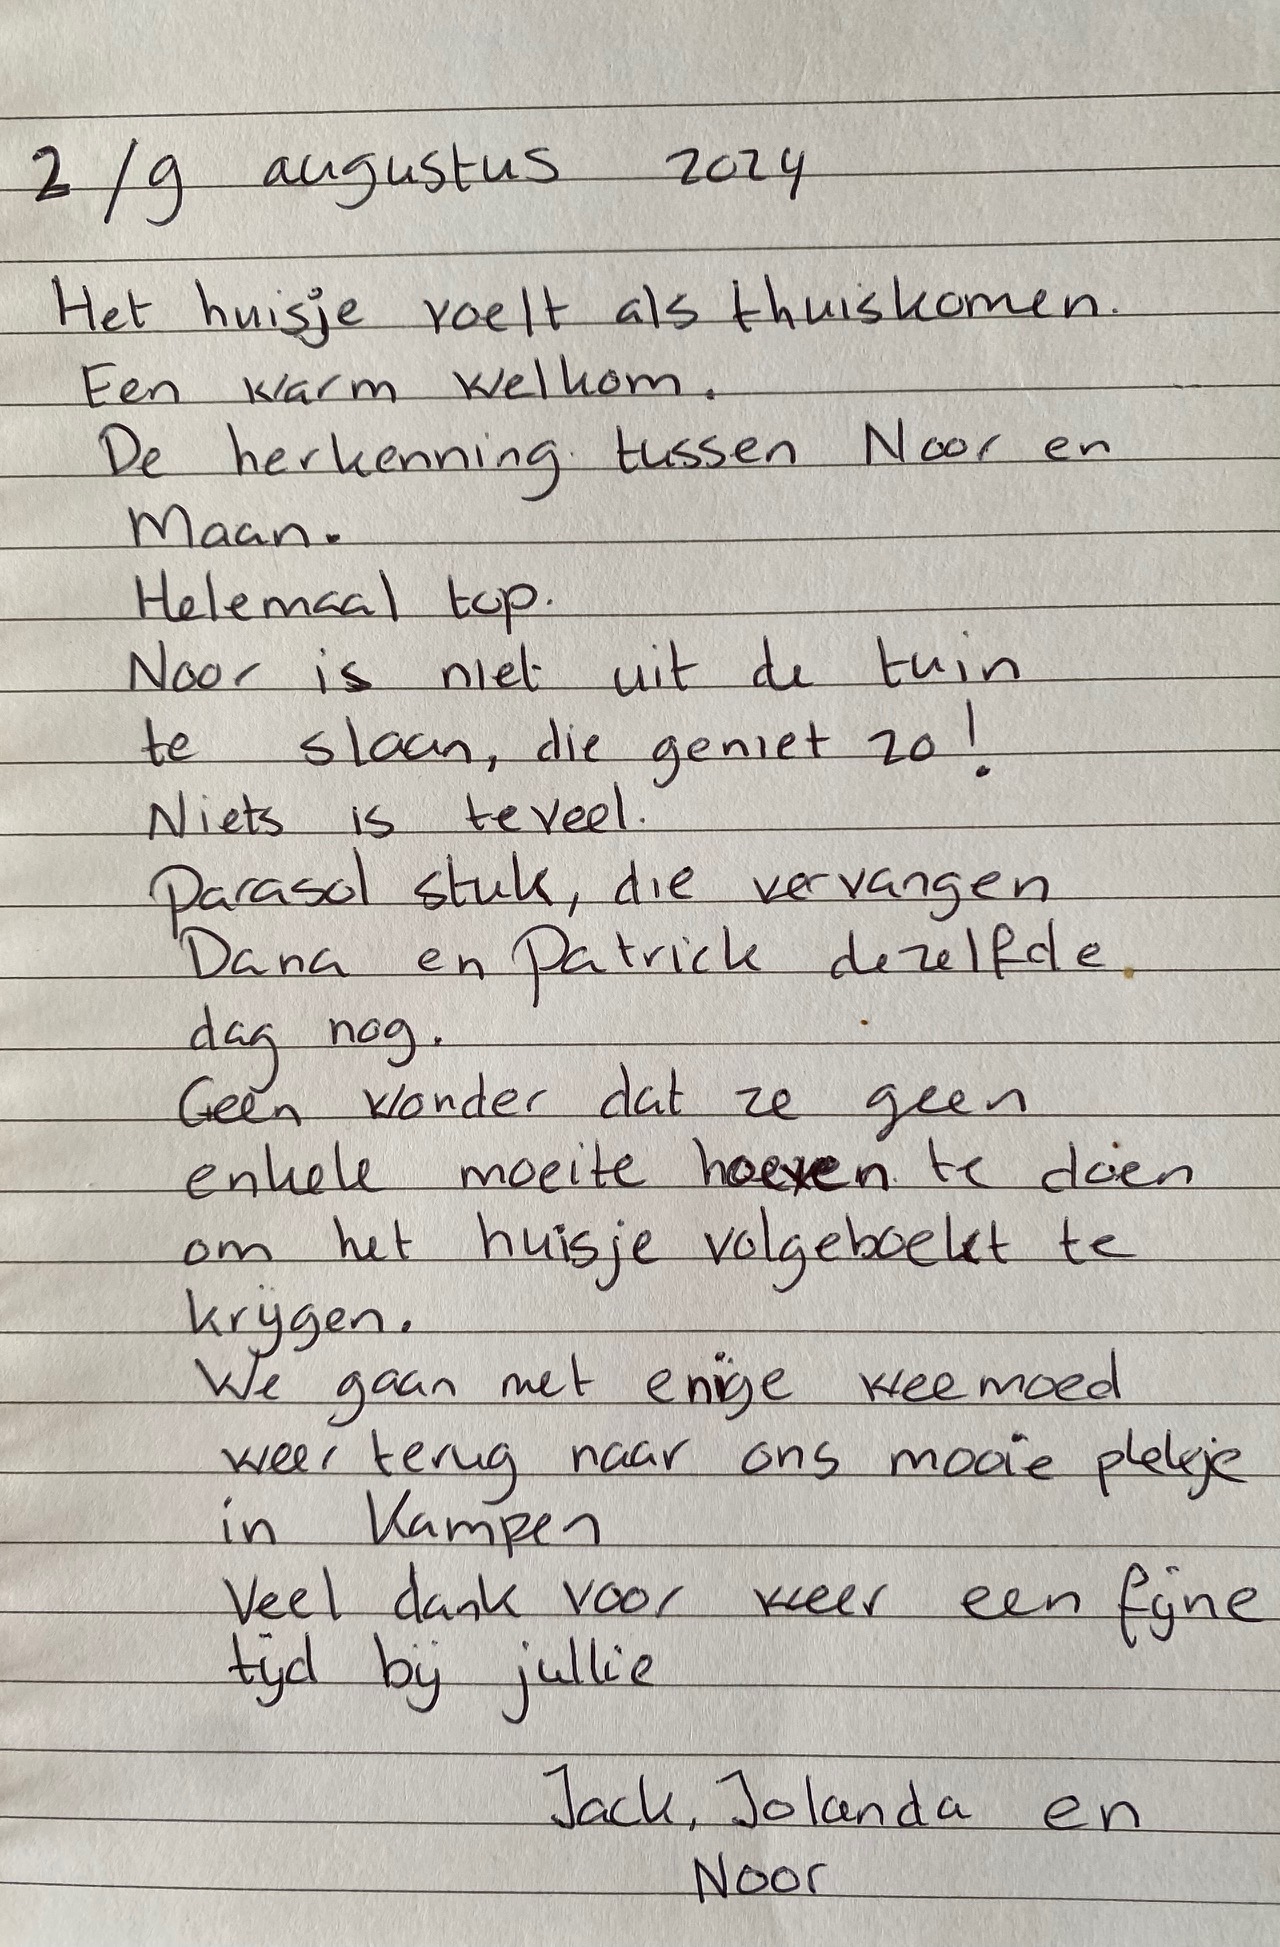 2/9 augustus 2024
Het huisje voelt als thuiskomen.
Een warm welkom.
De herkenning tussen Noor en
Maan.
Helemaal top.
Noor is niet uit de tuin
te slaan, die geniet zo!
Niets is teveel.
Parasol stuk, die vervangen
Dana en Patrick dezelfde
dag nog.
Geen wonder dat ze geen
enkele moeite hoeven te doen
om het huisje volgeboekt te
krijgen.
We gaan met enige weemoed
weer terug naar ons mooie plekje
in Kampen
Veel dank voor weer een fijne
tijd bij jullie
Jack, Jolanda en
Noor